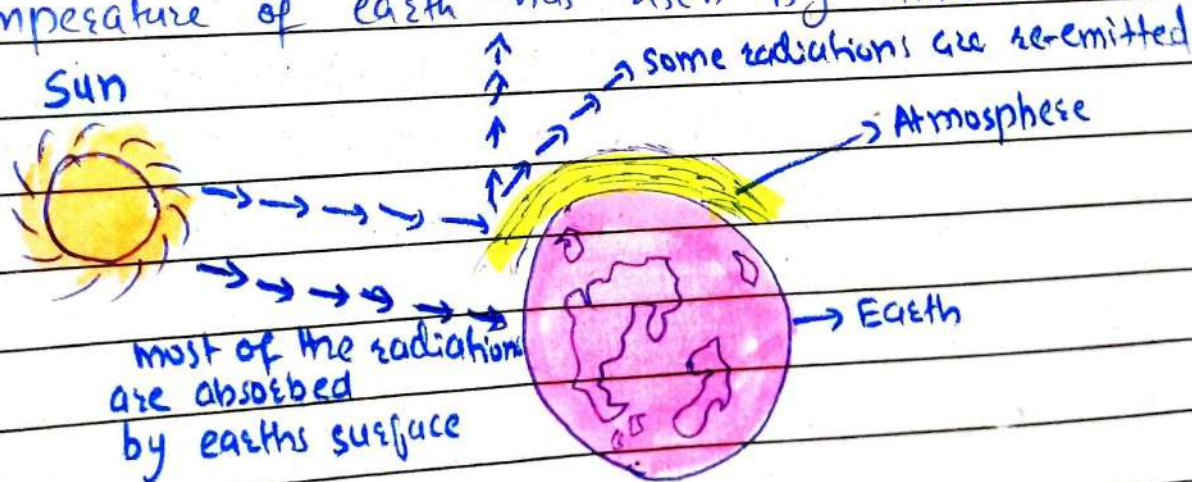 temperature of earth has
some radiations are re-emitted
Sun
Atmosphere
Earth
most of the radiations
are absorbed
by earths surface